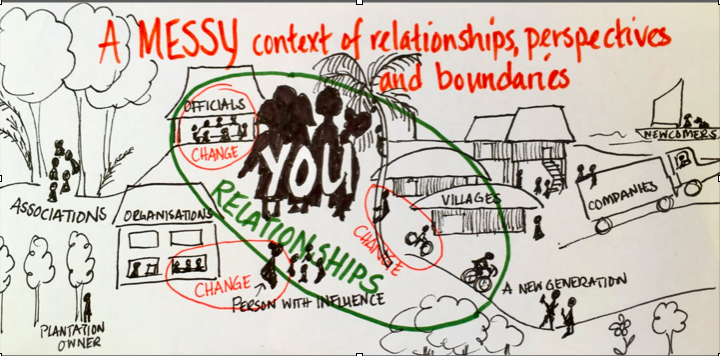 A MESSY context of relationships, perspectives
and boundaries
OFFICIALS
CHANGE
YOU
RELATIONSHIPS
NEWCOMERS
COMPANIES
VILLAGES
CHANGE
ASSOCIATIONS
ORGANISATIONS
CHANGE
PERSON WITH INFLUENCE
A NEW GENERATION
PLANTATION
OWNER